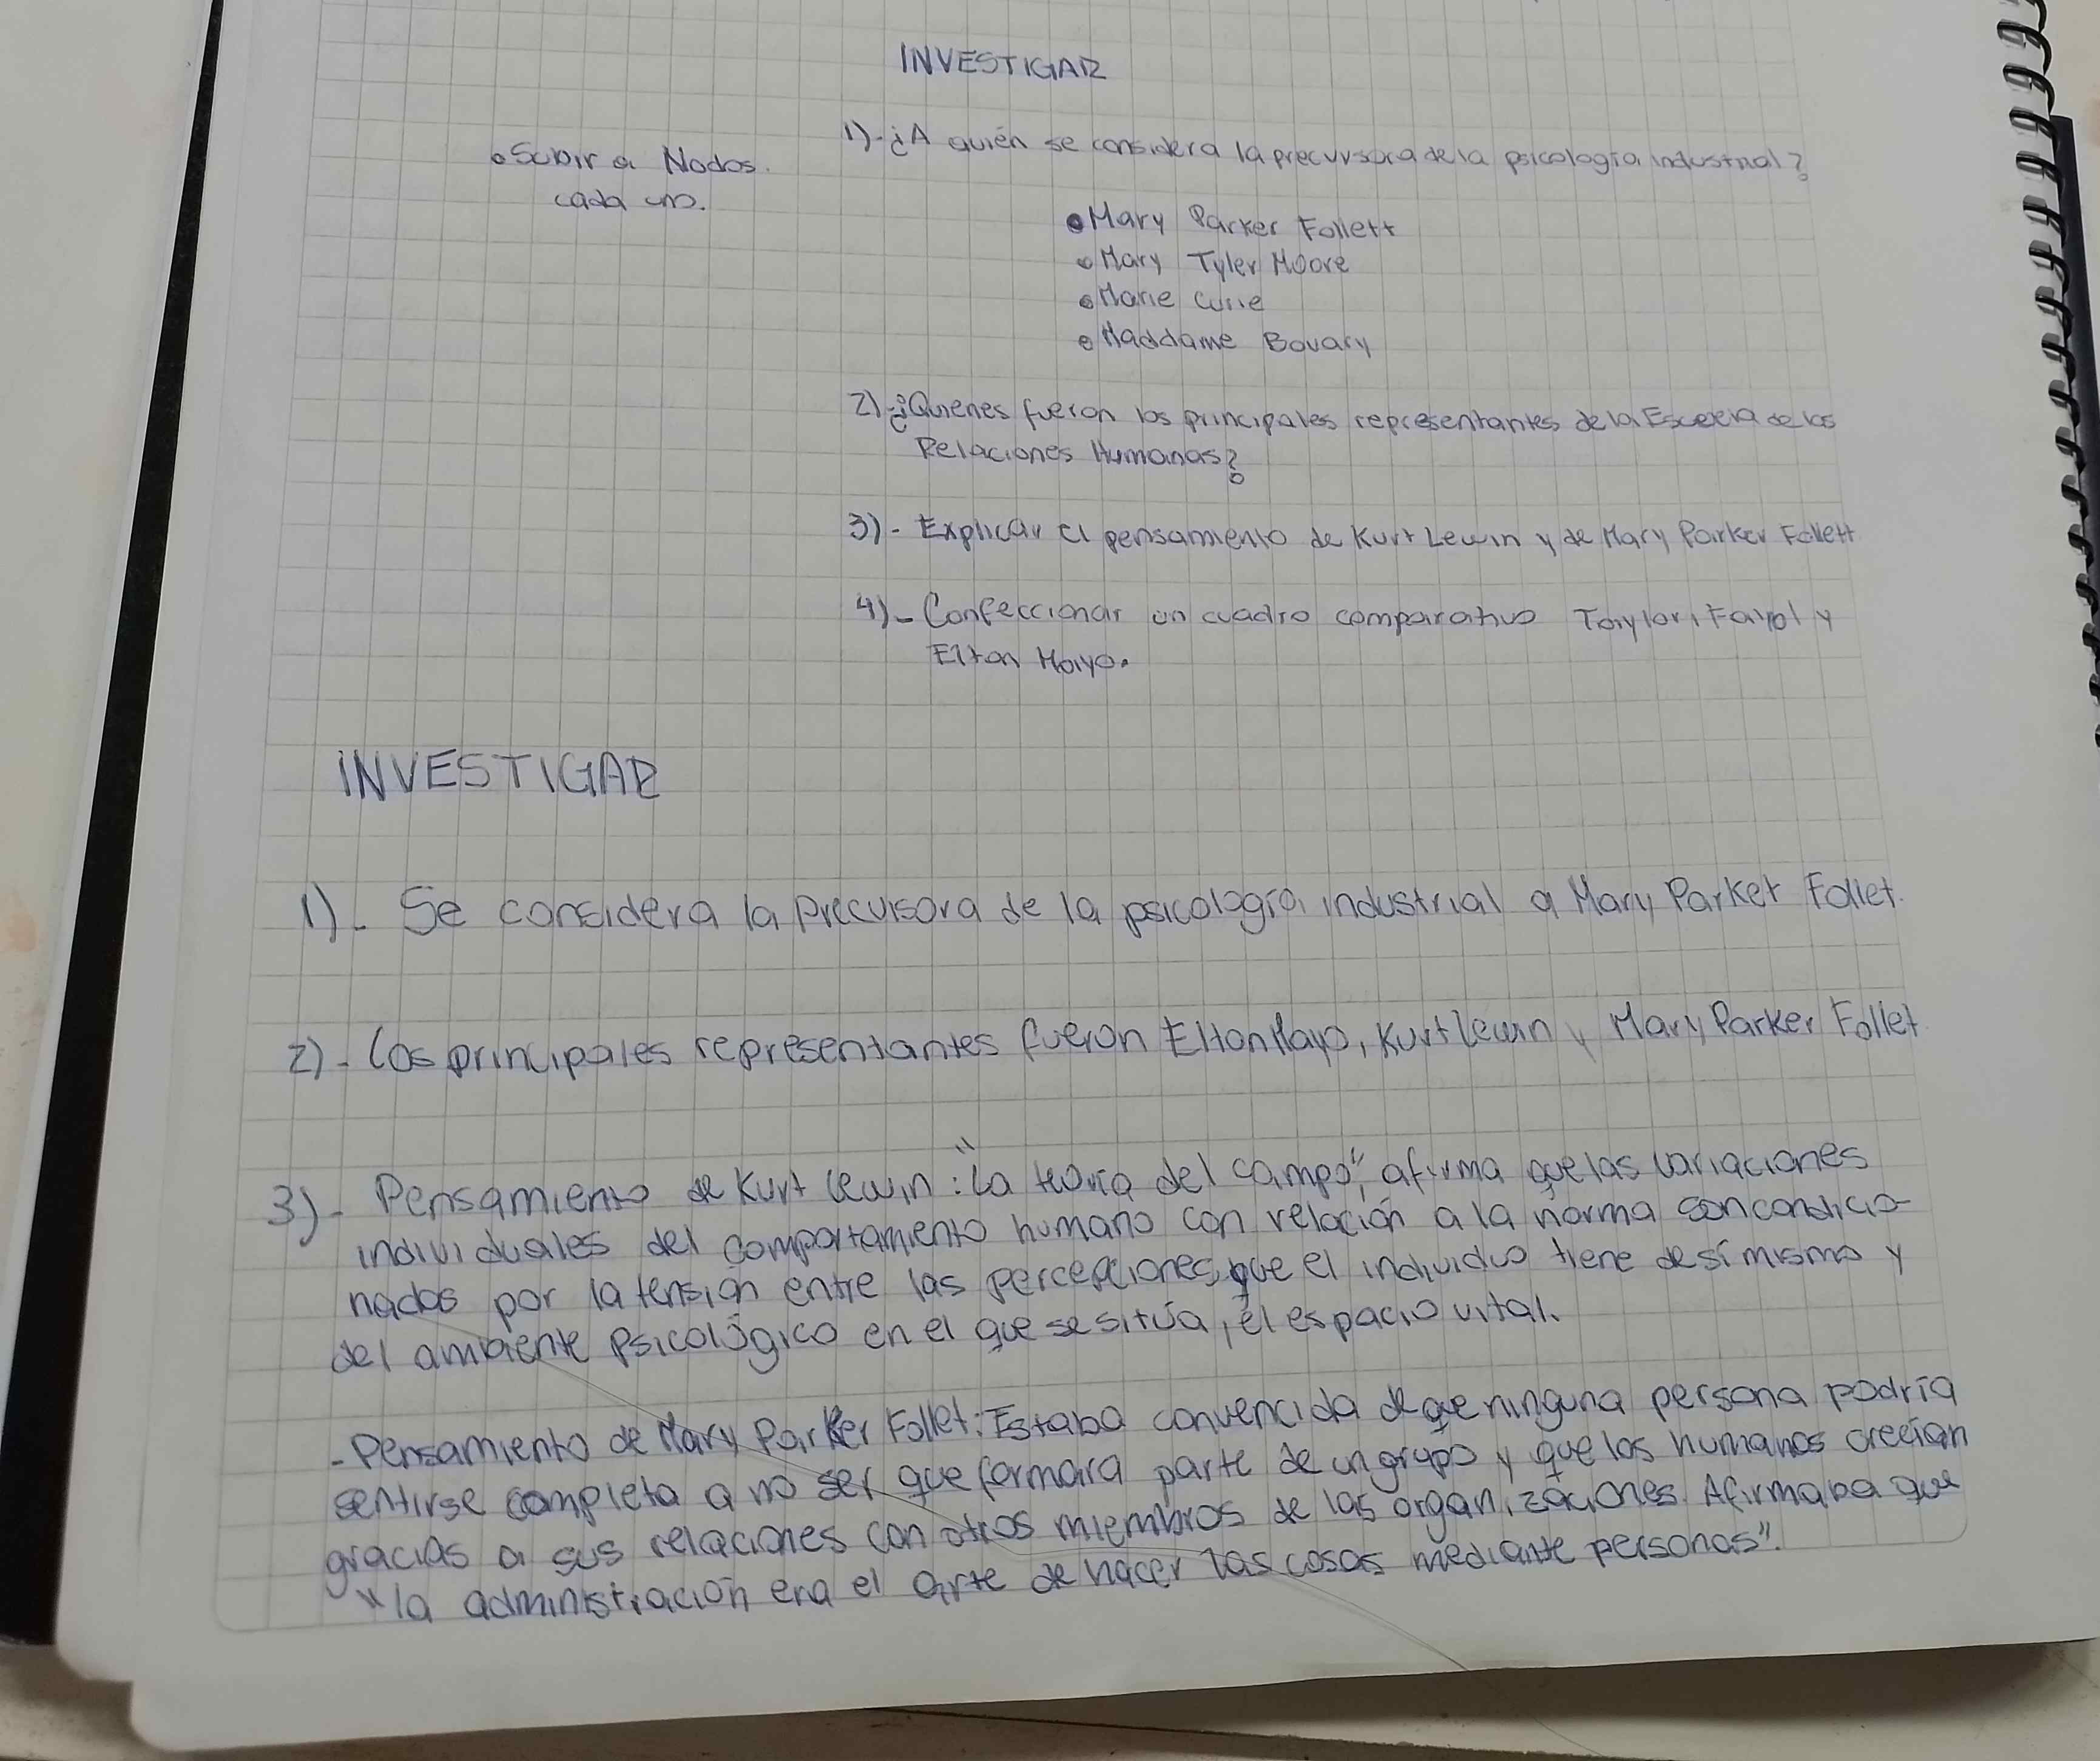 INVESTIGAR
• Subir a Nodos.
cada uno.
1)- ¿A quién se considera la precursora de la psicología industrial?
• Mary Parker Follett
• Mary Tyler Moore
• Marie Curie
• Maddame Bovary
2)- ¿Quienes fueron los principales representantes de la Escuela de las
Relaciones Humanas?
3)- Explicar el pensamiento de Kurt Lewin y de Mary Parker Follett
4)- Confeccionar un cuadro comparativo Taylor, Fayol y
Elton Mayo.
INVESTIGAR
1)- Se considera la precursora de la psicología industrial a Mary Parker Follet.
2)- Los principales representantes fueron Elton Mayo, Kurt Lewin y Mary Parker Follet
3)- Pensamiento de Kurt Lewin: "La teoría del campo", afirma que las variaciones
individuales del comportamiento humano con relación a la norma son condicio-
nados por la tensión entre las percepciones que el individuo tiene de sí mismo y
del ambiente psicológico en el que se sitúa, el espacio vital.
- Pensamiento de Mary Parker Follet: Estaba convencida de que ninguna persona podría
sentirse completa a no ser que formara parte de un grupo y que los humanos crecían
gracias a sus relaciones con otros miembros de las organizaciones. Afirmaba que
"la administración era el arte de hacer las cosas mediante personas".